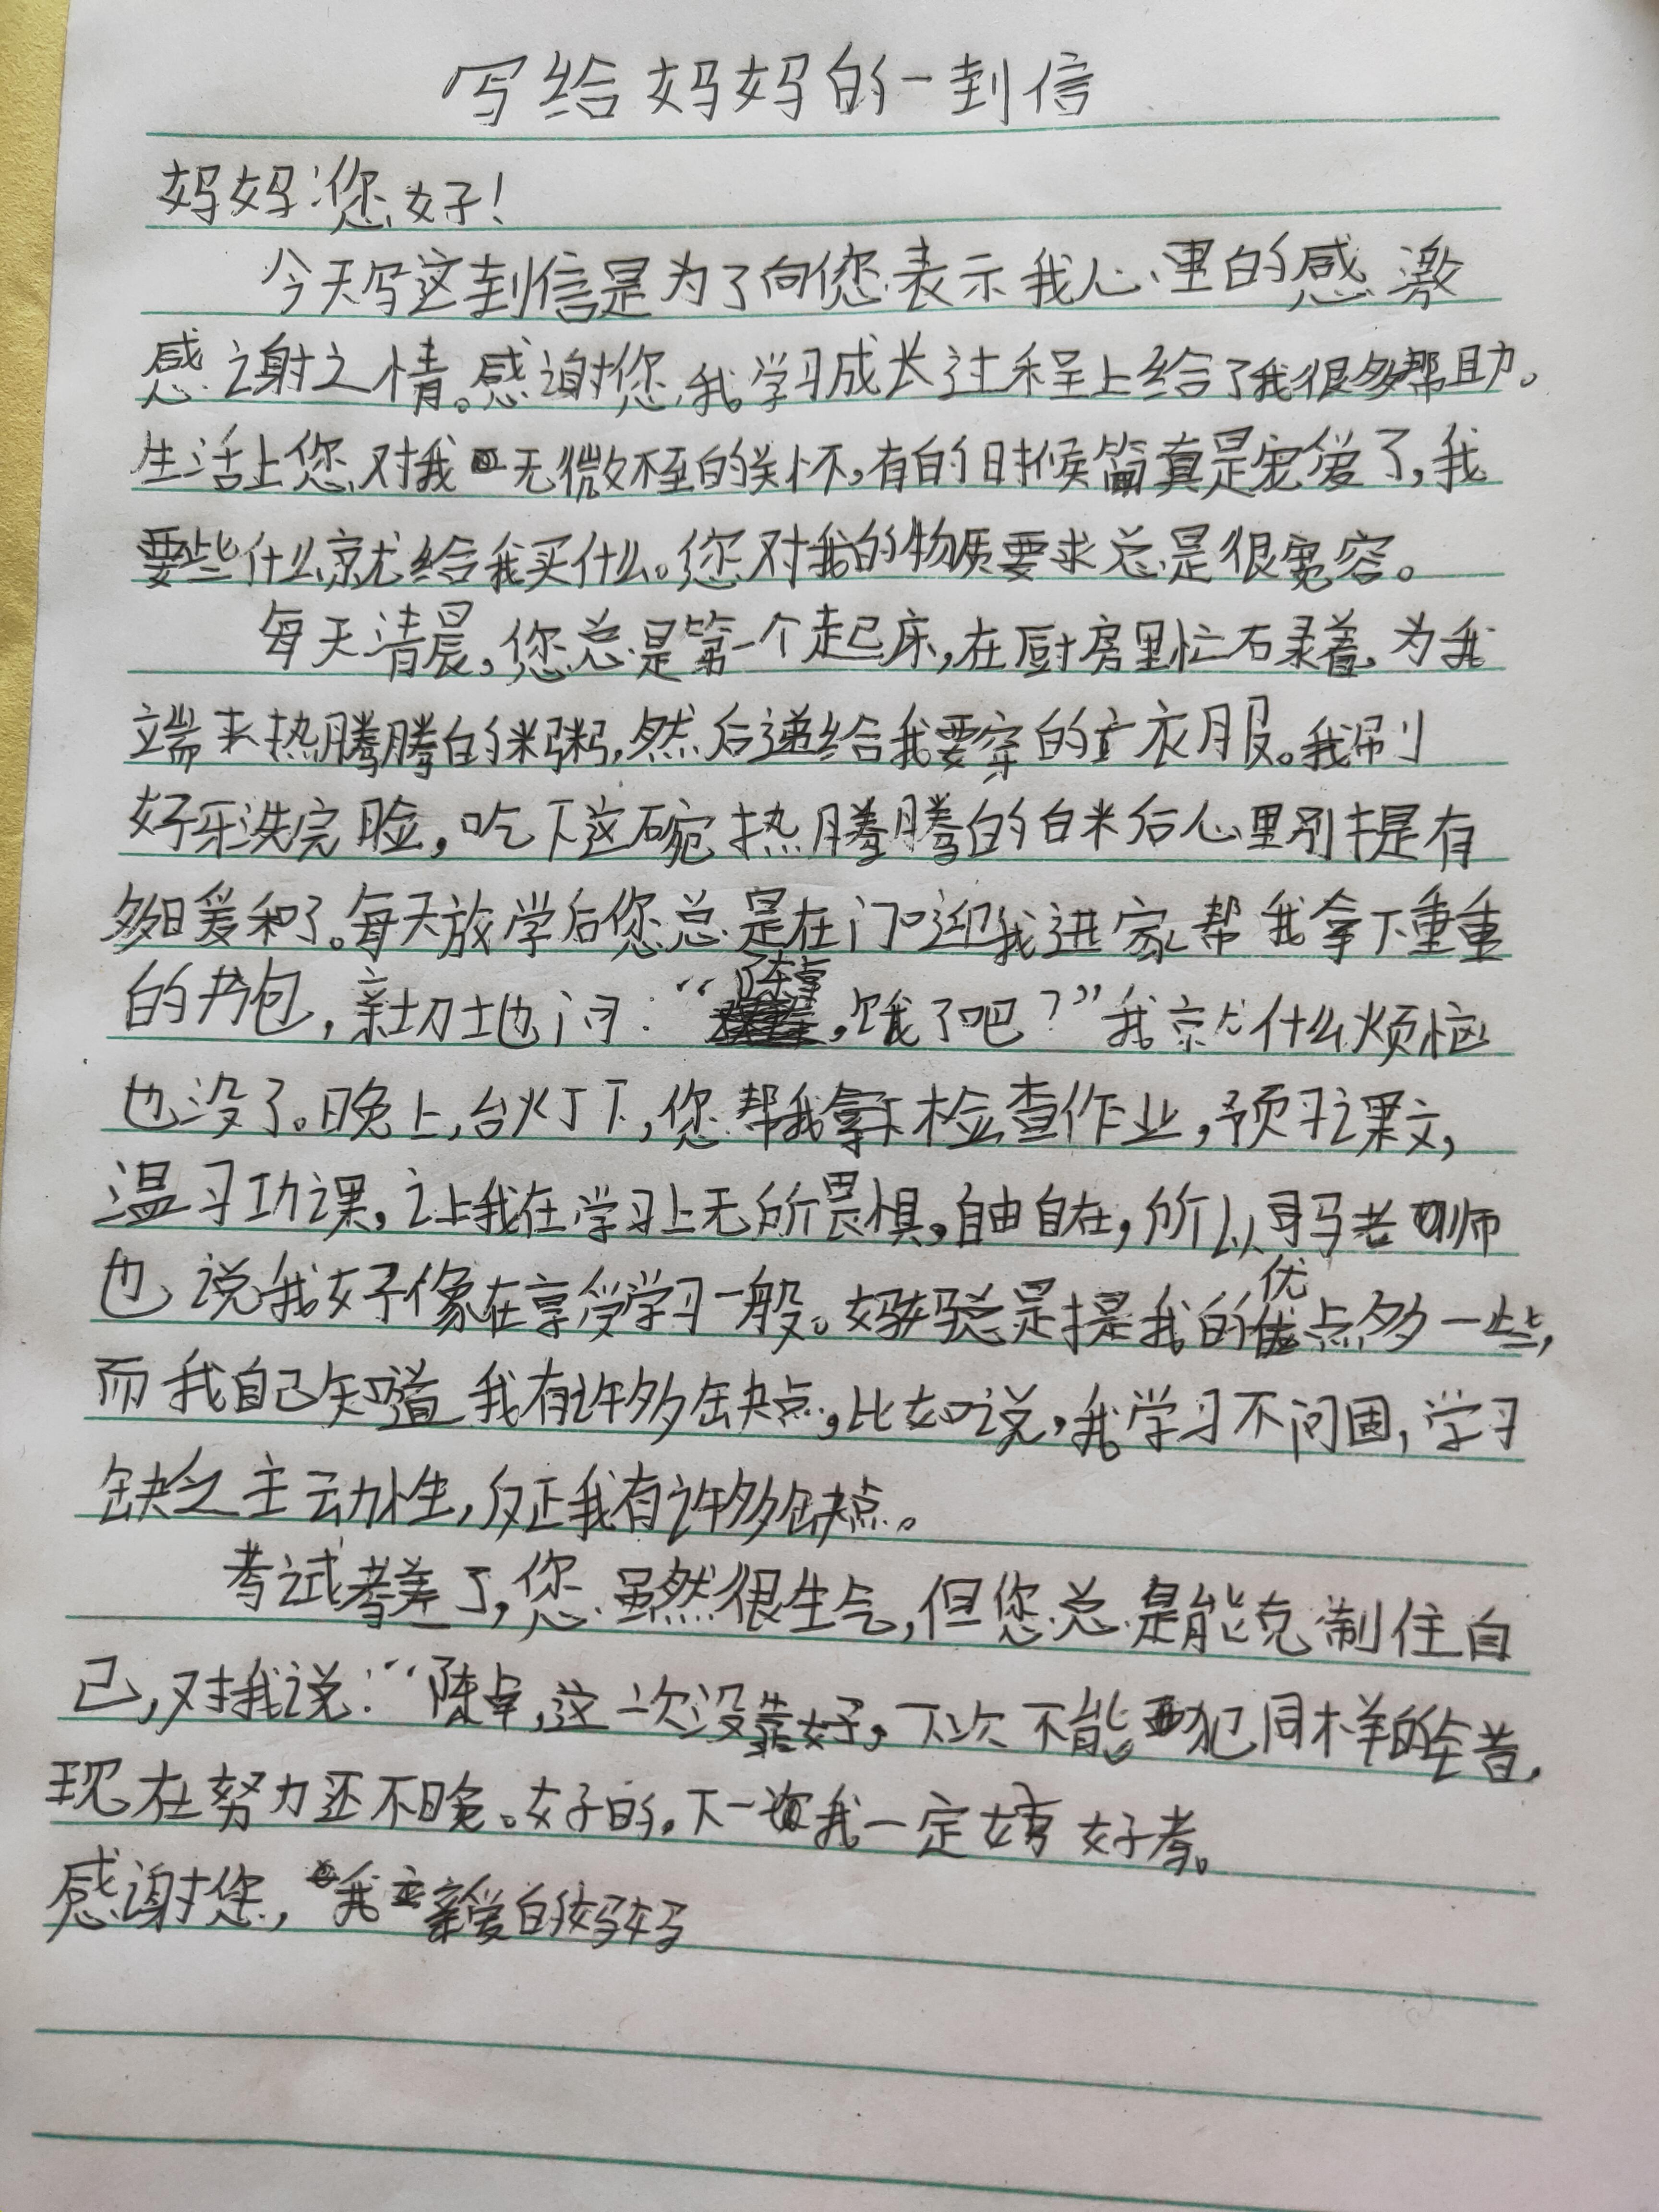 写给妈妈的一封信
妈妈：您好！
今天写这封信是为了向您表示我心里的感激
感谢之情。感谢您，我学习成长过程上给了我很多帮助。
生活上您对我无微不至的关怀，有的时候简真是宠爱了，我
要些什么就给我买什么。您对我的物质要求总是很宽容。
每天清晨，您总是第一个起床，在厨房里忙碌着，为我
端来热腾腾的米粥，然后递给我要穿的衣服。我刷
好牙洗完脸，吃下这碗热腾腾的白米后心里别提是有
多暖和了。每天放学后您总是在门口迎我进家帮我拿下重重
的书包，亲切地问：“陈卓，饿了吧？”我就什么烦恼
也没了。晚上，台灯下，您帮我检查作业，预习课文，
温习功课，让我在学习上无所畏惧，自由自在，所以司马老师
也说我好像在享受学习一般。妈妈总是提我的优点多一些，
而我自己知道我有许多缺点，比如说，我学习不问困，学习
缺乏主动性，反正我有许多缺点。
考试考差了，您虽然很生气，但您总是能克制住自
己，对我说：“陈卓，这一次没考好，下次不能犯同样的错，
现在努力还不晚。好的，下一次我一定好考。
感谢您，我亲爱的妈妈